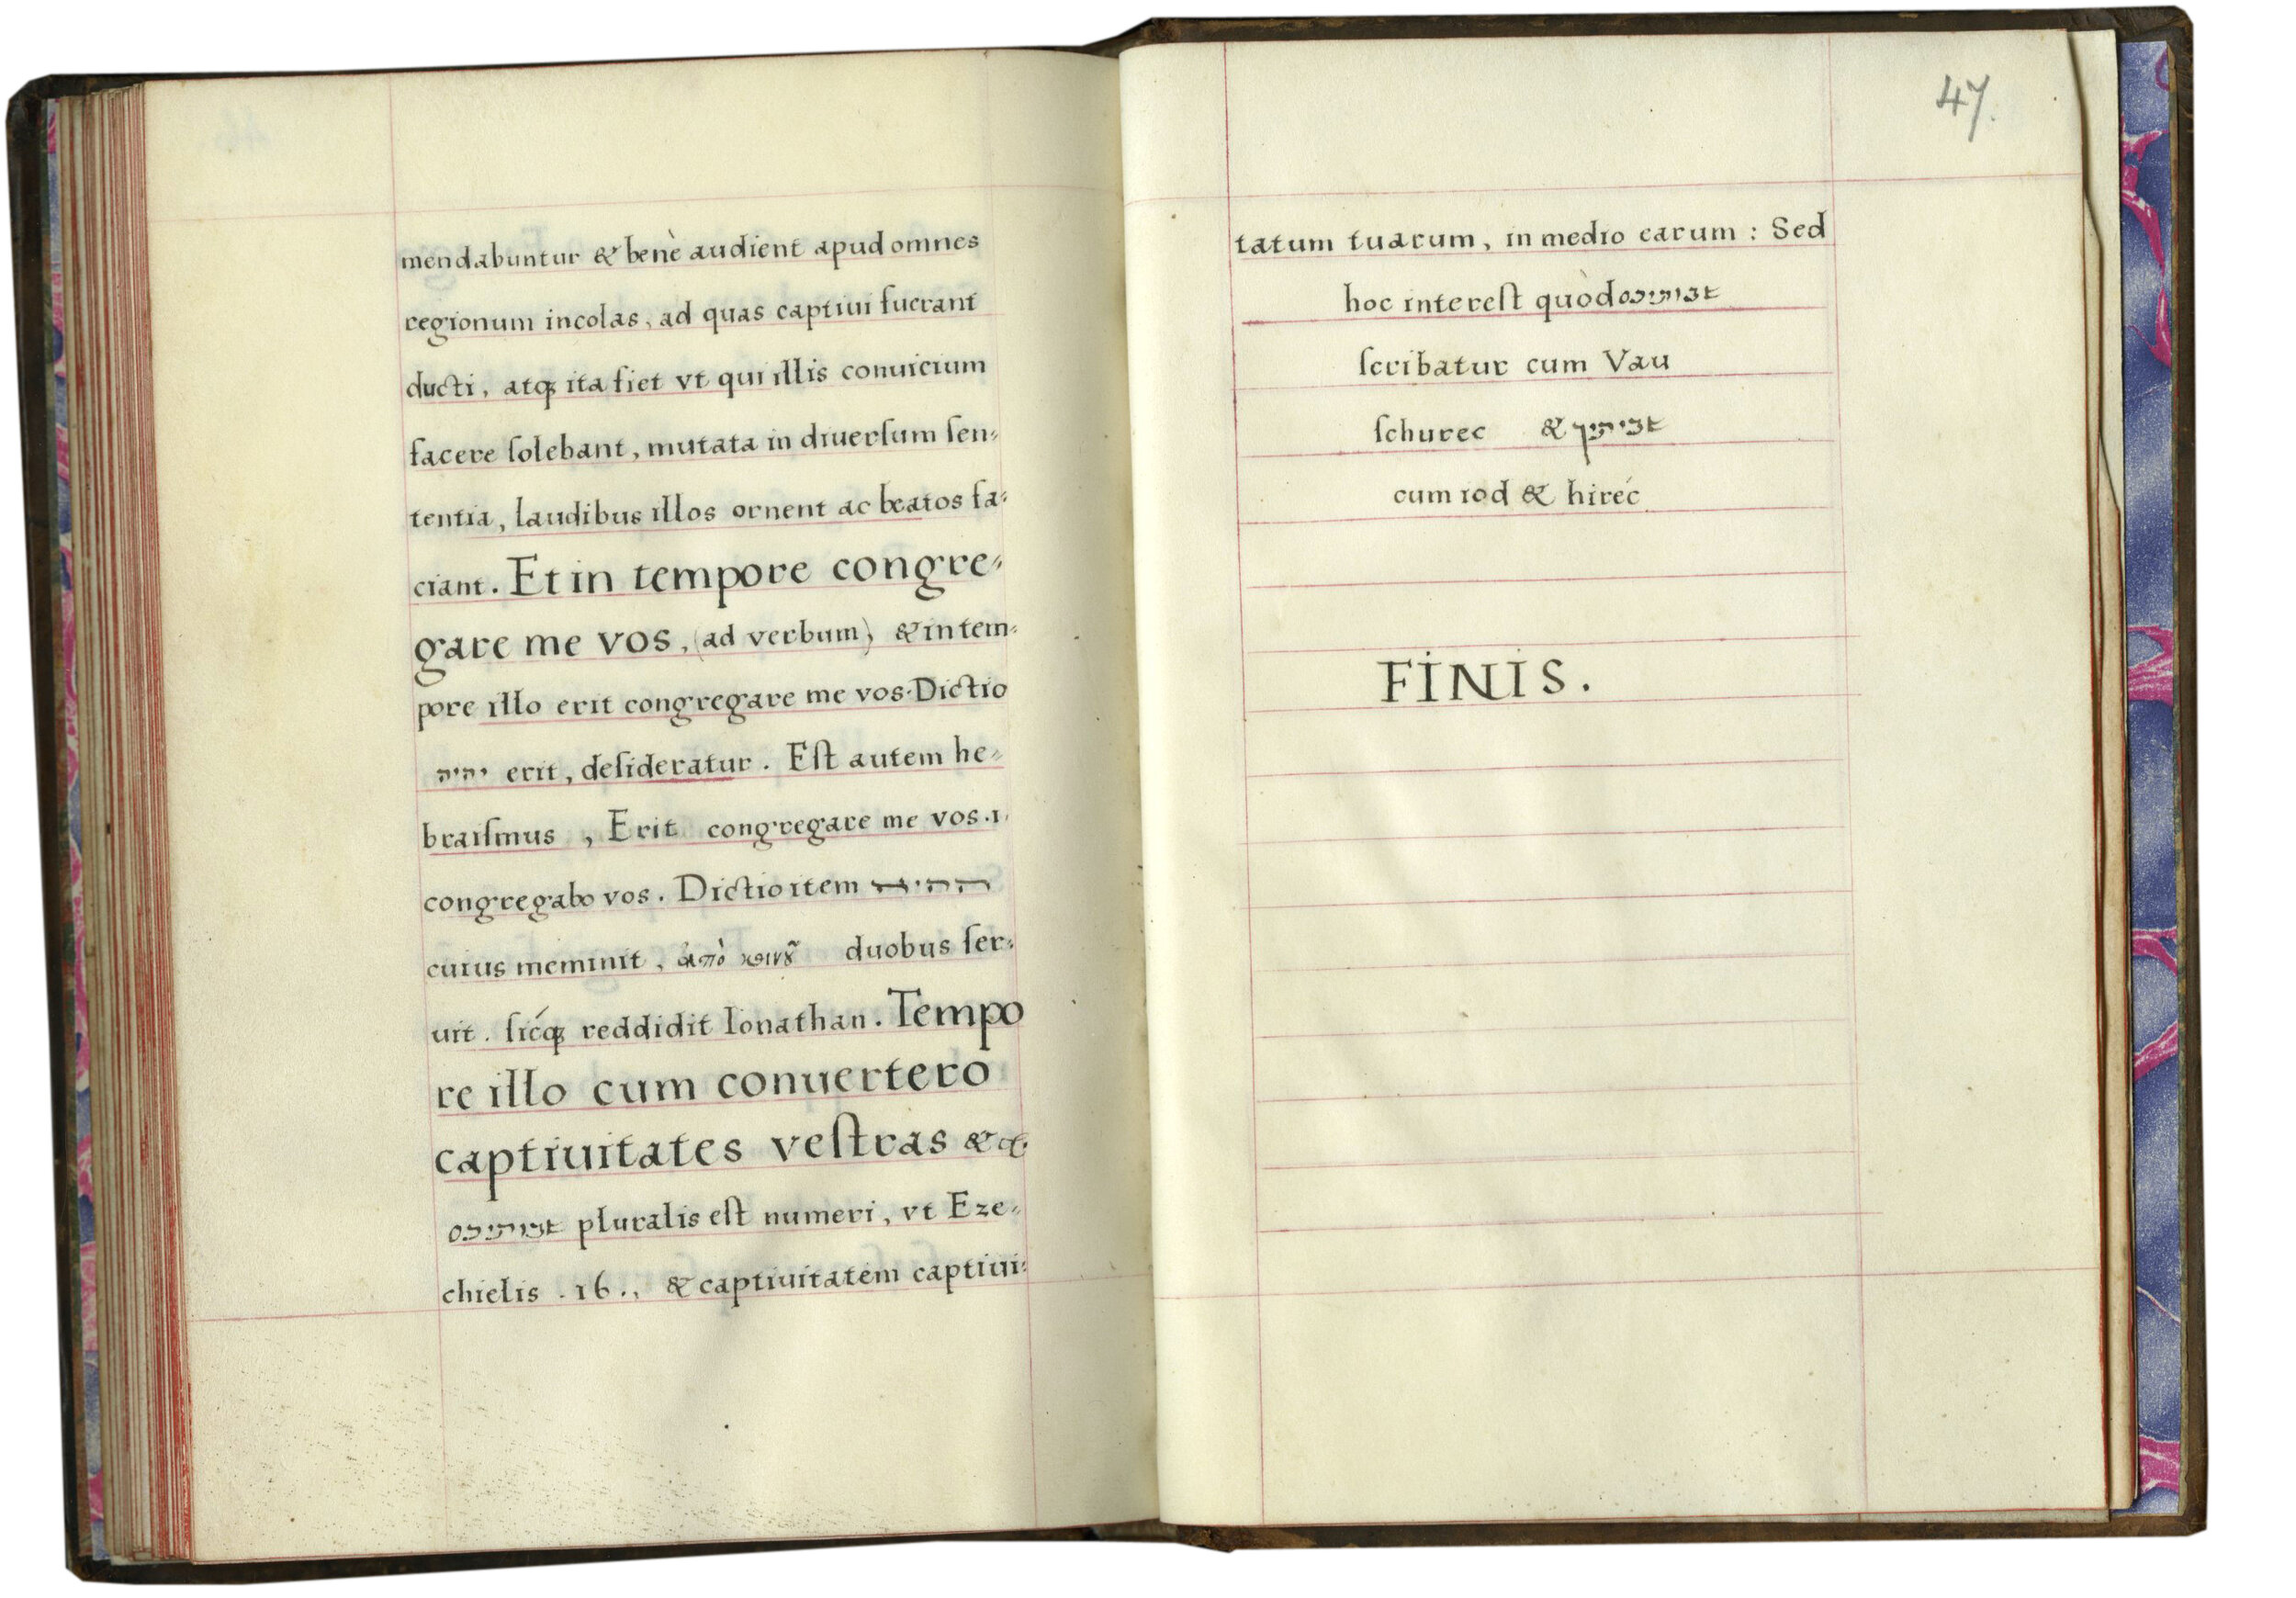 mendabuntur & benè audient apud omnes
regionum incolas, ad quas captiui fuerant
ducti, atqꝫ ita fiet vt qui illis conuicium
facere ſolebant, mutata in diuerſum ſen-
tentia, laudibus illos ornent ac beatos fa-
ciant. Et in tempore congre-
gare me vos, (ad verbum) & in tem-
pore illo erit congregare me vos. Dictio
יהיה erit, deſideratur. Eſt autem he-
braiſmus, Erit congregare me vos .i.
congregabo vos. Dictio item ההיא
cuius meminit, duobus ſer-
uit. ſicqꝫ reddidit Ionathan. Tempo
re illo cum conuertero
captiuitates veſtras &c.
שבותיכם pluralis eſt numeri, vt Eze-
chielis .16., & captiuitatem captiui-
47.
tatum tuarum, in medio earum : Sed
hoc intereſt quòd שבותיכם
ſcribatur cum Vau
ſchurec & שביתיך
cum iod & hiréc
FINIS.